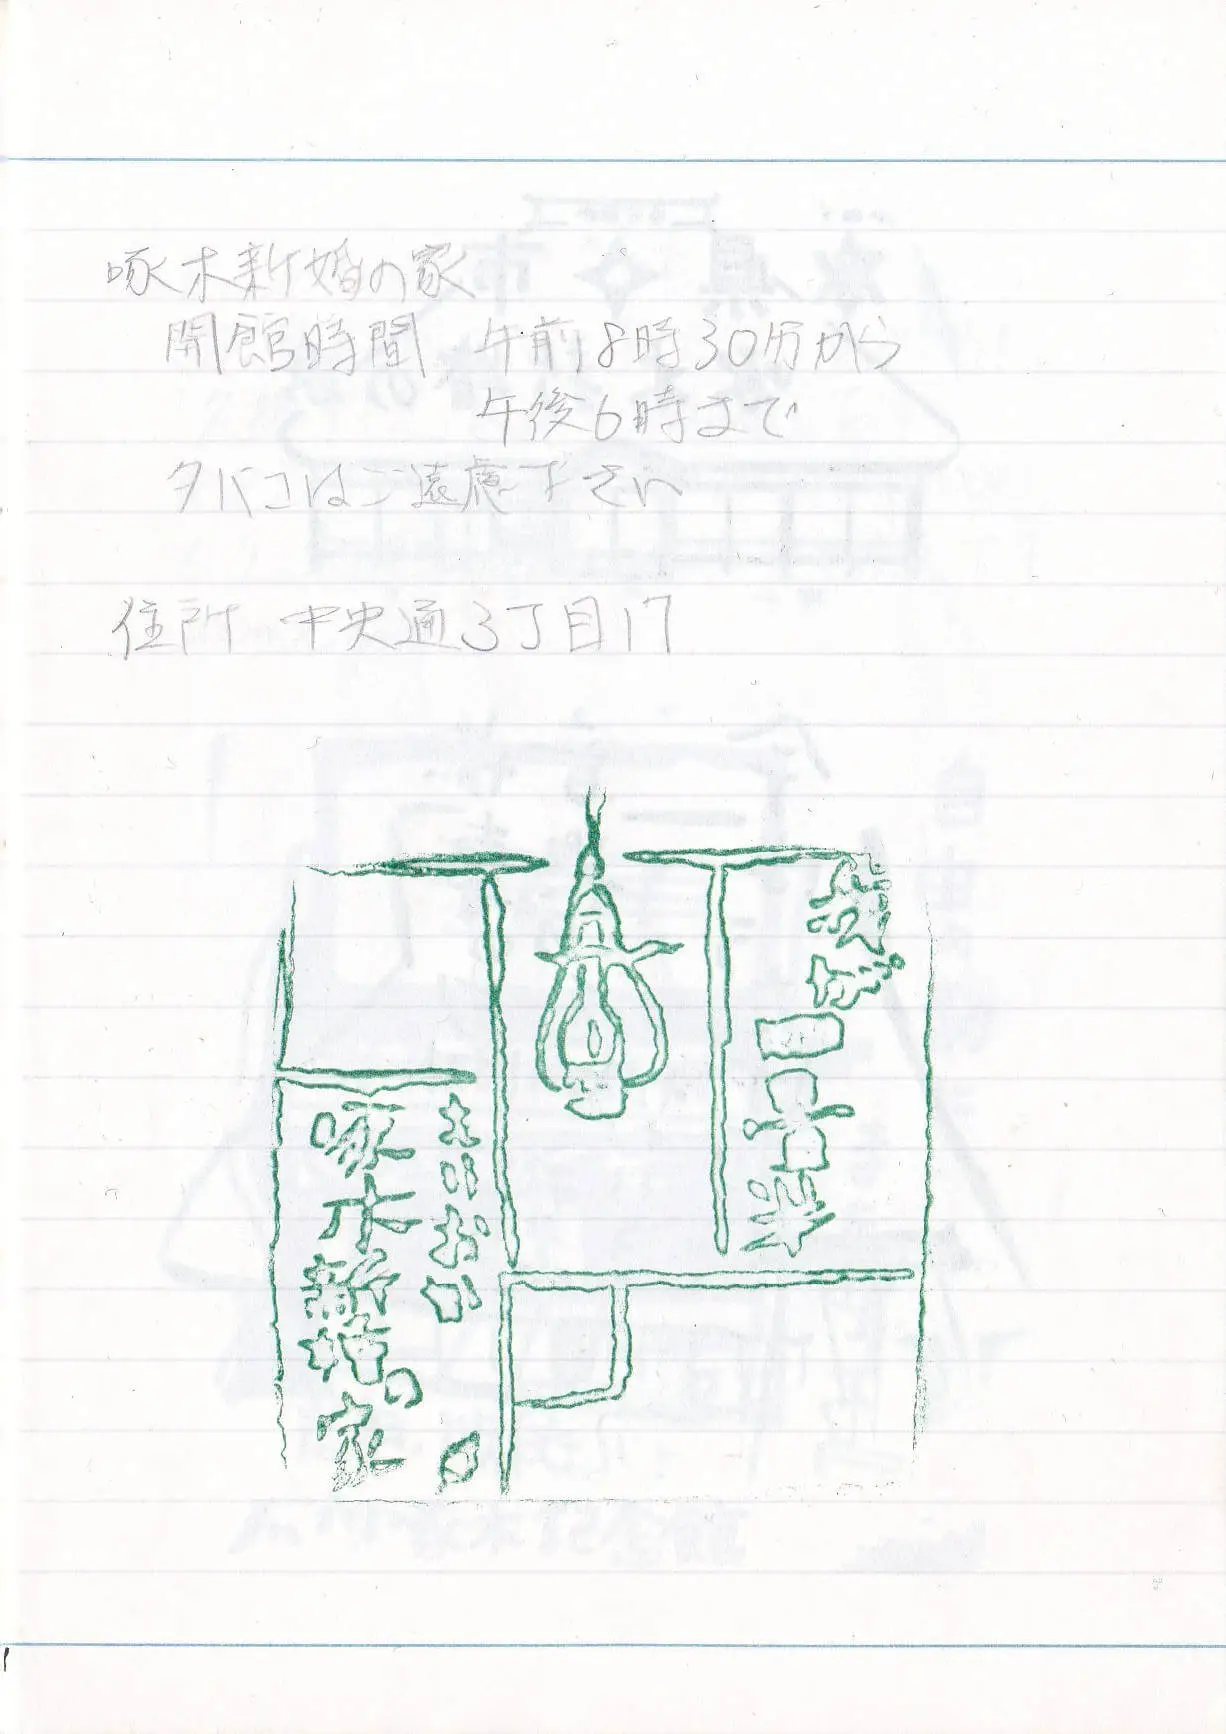 啄木新婚の家
開館時間 午前8時30分から
午後6時まで
タバコはご遠慮下さい
住所 中央通3丁目17
啄木新婚の家
もりおか